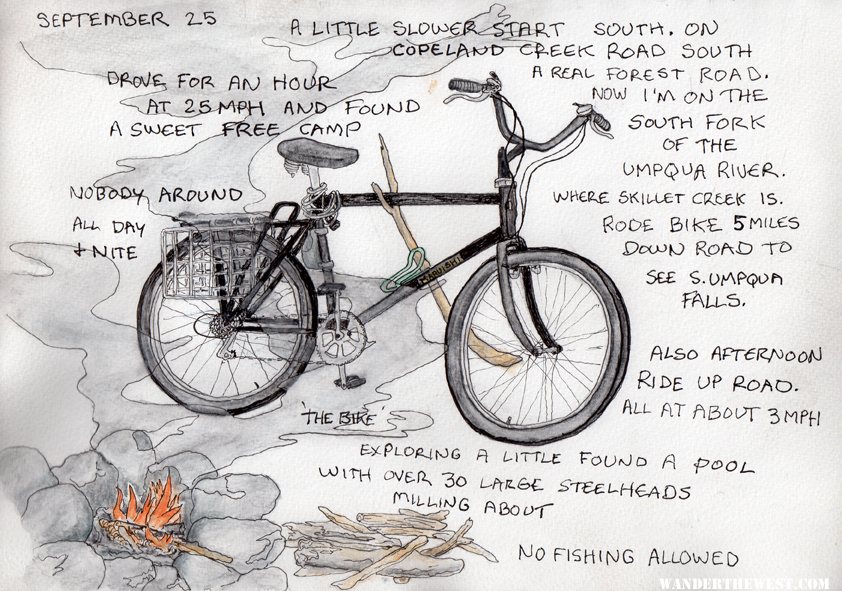 SEPTEMBER 25
A LITTLE SLOWER START SOUTH. ON
COPELAND CREEK ROAD SOUTH
A REAL FOREST ROAD.
NOW I'M ON THE
SOUTH FORK
OF THE
UMPQUA RIVER.
WHERE SKILLET CREEK IS.
RODE BIKE 5 MILES
DOWN ROAD TO
SEE S. UMPQUA
FALLS.
ALSO AFTERNOON
RIDE UP ROAD.
ALL AT ABOUT 3 MPH
DROVE FOR AN HOUR
AT 25 MPH AND FOUND
A SWEET FREE CAMP
NOBODY AROUND
ALL DAY
+ NITE
'THE BIKE'
EXPLORING A LITTLE FOUND A POOL
WITH OVER 30 LARGE STEELHEADS
MILLING ABOUT
NO FISHING ALLOWED
WANDERTHEWEST.COM